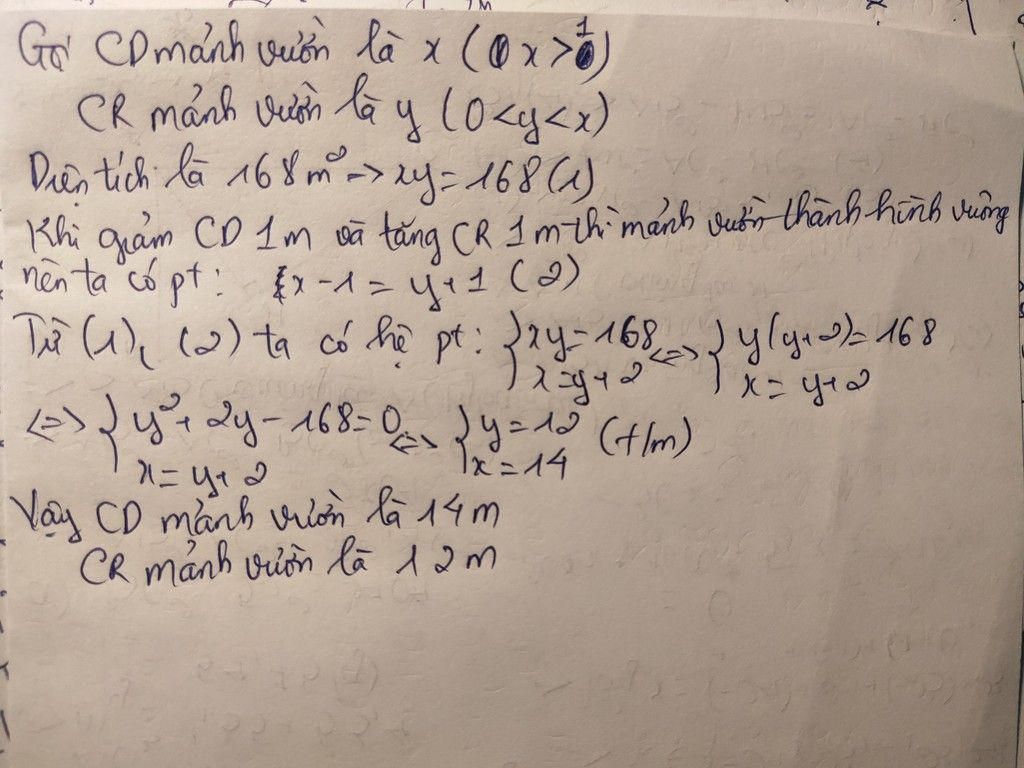 Gọi CD mảnh vườn là x ( x > 1)
CR mảnh vườn là y (0 < y < x)
Diện tích là 168 m² → xy = 168 (1)
Khi giảm CD 1m và tăng CR 1m thì mảnh vườn thành hình vuông
nên ta có pt: x - 1 = y + 1 (2)
Từ (1), (2) ta có hệ pt: { xy = 168 x = y + 2 <=> { y(y + 2) = 168 x = y + 2
<=> { y² + 2y - 168 = 0 x = y + 2 <=> { y = 12 x = 14 (t/m)
Vậy CD mảnh vườn là 14 m
CR mảnh vườn là 12 m